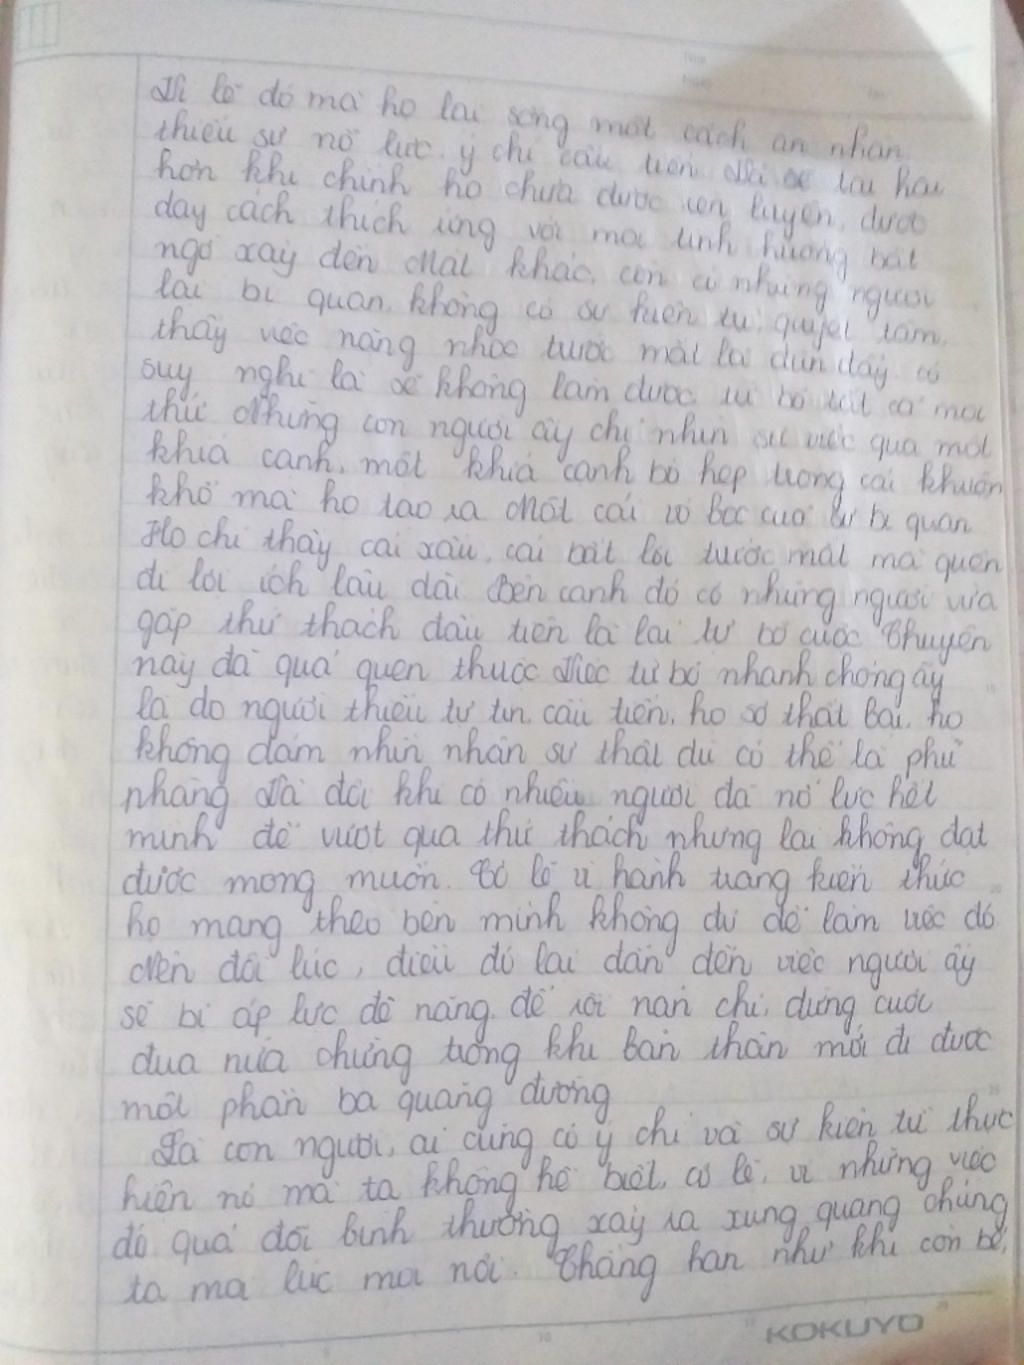 Vì lẽ đó mà họ lại sống một cách an nhàn,
thiếu sự nỗ lực, ý chí cầu tiến. Và sẽ tai hại
hơn khi chính họ chưa được rèn luyện, được
dạy cách thích ứng với mọi tình huống bất
ngờ xảy đến. Mặt khác, còn có những người
lại bi quan, không có sự kiên trì, quyết tâm,
thấy việc nặng nhọc trước mắt lại đùn đẩy, có
suy nghĩ là sẽ không làm được, từ bỏ tất cả mọi
thứ. Những con người ấy chỉ nhìn sự việc qua một
khía cạnh, một khía cạnh bó hẹp trong cái khuôn
khổ mà họ tạo ra. Một cái vỏ bọc của sự bi quan.
Họ chỉ thấy cái xấu, cái bất lợi trước mắt mà quên
đi lợi ích lâu dài. Bên cạnh đó có những người vừa
gặp thử thách đầu tiên là lại từ bỏ cuộc. Chuyện
này đã quá quen thuộc. Việc từ bỏ nhanh chóng ấy
là do người thiếu tự tin, cầu tiến, họ sợ thất bại, họ
không dám nhìn nhận sự thật dù có thể là phũ
phàng. Và đôi khi có nhiều người đã nỗ lực hết
mình để vượt qua thử thách nhưng lại không đạt
được mong muốn. Có lẽ vì hành trang kiến thức
họ mang theo bên mình không đủ để làm việc đó.
Nên đôi lúc, điều đó lại dẫn đến việc người ấy
sẽ bị áp lực đè nặng, để rồi nản chí, dừng cuộc
đua nửa chừng trong khi bản thân mới đi được
một phần ba quãng đường.
Là con người, ai cũng có ý chí và sự kiên trì thực
hiện nó mà ta không hề biết, có lẽ, vì những việc
đó quá đỗi bình thường xảy ra xung quang chúng
ta mà lúc mà nói. Chẳng hạn như khi còn bé,
KOKUYO